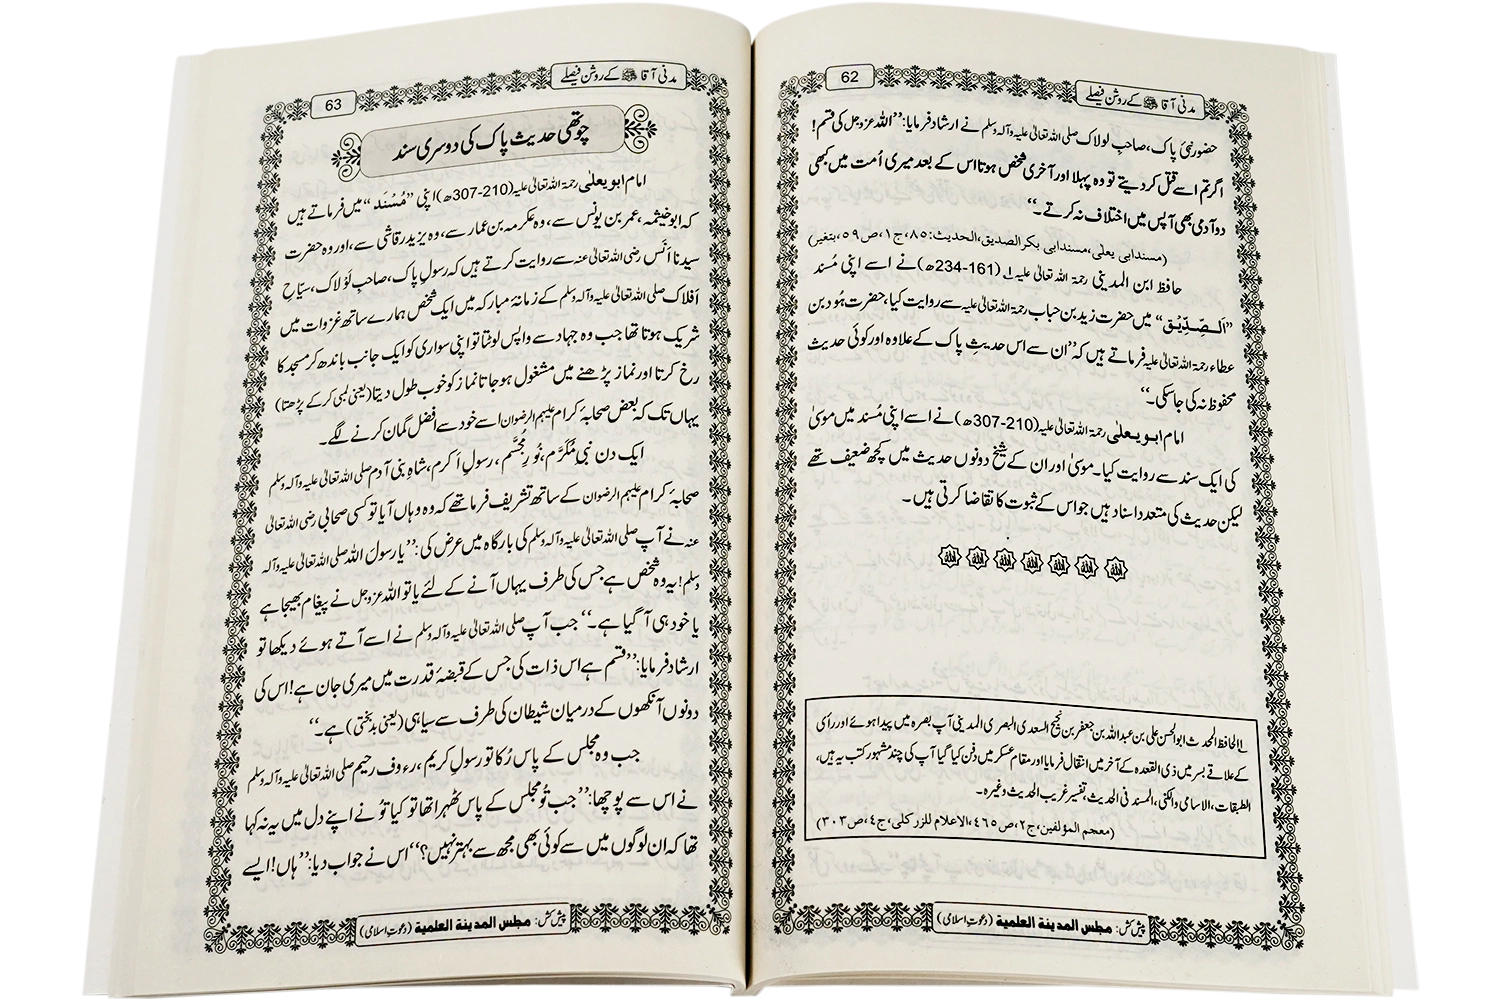 62
مدنی آقا ﷺ کے روشن فیصلے
حضور نبی پاک، صاحبِ لولاک صلی اللہ تعالیٰ علیہ وآلہ وسلم نے ارشاد فرمایا: ”اللہ عزوجل کی قسم!
اگر تم اسے قتل کر دیتے تو وہ پہلا اور آخری شخص ہوتا اس کے بعد میری اُمت میں کبھی
دو آدمی بھی آپس میں اختلاف نہ کرتے۔“
(مسند ابی یعلی، مسند ابی بکر الصدیق، الحدیث: ٨٥، ج١، ص٥٩، بتغیر)
حافظ ابن المدینی رحمۃ اللہ تعالیٰ علیہ ١ (161-234ھ) نے اسے اپنی مُسند
”اَلصِّدِّیْق“ میں حضرت زید بن حباب رحمۃ اللہ تعالیٰ علیہ سے روایت کیا، حضرت ہُود بن
عطاء رحمۃ اللہ تعالیٰ علیہ فرماتے ہیں کہ ”ان سے اس حدیثِ پاک کے علاوہ اور کوئی حدیث
محفوظ نہ کی جاسکی۔“
امام ابو یعلی رحمۃ اللہ تعالیٰ علیہ (210-307ھ) نے اسے اپنی مُسند میں موسیٰ
کی ایک سند سے روایت کیا۔ موسیٰ اور ان کے شیخ دونوں حدیث میں کچھ ضعیف تھے
لیکن حدیث کی متعدد اسناد ہیں جو اس کے ثبوت کا تقاضا کرتی ہیں۔
١ الحافظ المحدث ابو الحسن علی بن عبداللہ بن جعفر بن نجیح السعدی البصری المدینی آپ بصرہ میں پیدا ہوئے اور رأی
کے علاقے بسر میں ذی القعدہ کے آخر میں انتقال فرمایا اور مقام عسکر میں دفن کیا گیا آپ کی چند مشہور کتب یہ ہیں،
الطبقات، الاسامی والکنی، المسند فی الحدیث، تفسیر غریب الحدیث وغیرہ۔
(معجم المؤلفین، ج٢، ص٤٦٥، الاعلام للزرکلی، ج٤، ص٣٠٣)
پیش کش: مجلس المدینة العلمیة (دعوتِ اسلامی)
63
مدنی آقا ﷺ کے روشن فیصلے
چوتھی حدیث پاک کی دوسری سند
امام ابو یعلی رحمۃ اللہ تعالیٰ علیہ (210-307ھ) اپنی ”مُسْنَد“ میں فرماتے ہیں
کہ ابوخیثمہ، عمر بن یونس سے، وہ عکرمہ بن عمار سے، وہ یزید رقاشی سے، اور وہ حضرت
سیدنا اَنَس رضی اللہ تعالیٰ عنہ سے روایت کرتے ہیں کہ رسولِ پاک، صاحبِ لَوْلاک، سیّاحِ
اَفلاک صلی اللہ تعالیٰ علیہ وآلہ وسلم کے زمانۂ مبارکہ میں ایک شخص ہمارے ساتھ غزوات میں
شریک ہوتا تھا جب وہ جہاد سے واپس لوٹتا تو اپنی سواری کو ایک جانب باندھ کر مسجد کا
رخ کرتا اور نماز پڑھنے میں مشغول ہوجاتا نماز کو خوب طول دیتا (یعنی لمبی کر کے پڑھتا)
یہاں تک کہ بعض صحابۂ کرام علیہم الرضوان اسے خود سے افضل گمان کرنے لگے۔
ایک دن نبی مُکَرَّم، نُورِ مُجَسَّم، رسولِ اَکرم، شاہِ بنی آدم صلی اللہ تعالیٰ علیہ وآلہ وسلم
صحابۂ کرام علیہم الرضوان کے ساتھ تشریف فرما تھے کہ وہ وہاں آیا تو کسی صحابی رضی اللہ تعالیٰ
عنہ نے آپ صلی اللہ تعالیٰ علیہ وآلہ وسلم کی بارگاہ میں عرض کی: ”یا رسولَ اللہ صلی اللہ تعالیٰ علیہ وآلہ
وسلم! یہ وہ شخص ہے جس کی طرف یہاں آنے کے لئے یا تو اللہ عزوجل نے پیغام بھیجا ہے
یا خود ہی آ گیا ہے۔“ جب آپ صلی اللہ تعالیٰ علیہ وآلہ وسلم نے اسے آتے ہوئے دیکھا تو
ارشاد فرمایا: ”قسم ہے اس ذات کی جس کے قبضۂ قدرت میں میری جان ہے! اس کی
دونوں آنکھوں کے درمیان شیطان کی طرف سے سیاہی (یعنی بدبختی) ہے۔“
جب وہ مجلس کے پاس رُکا تو رسولِ کریم، رءوف رحیم صلی اللہ تعالیٰ علیہ وآلہ وسلم
نے اس سے پوچھا: ”جب تُو مجلس کے پاس ٹھہرا تھا تو کیا تُو نے اپنے دل میں یہ نہ کہا
تھا کہ ان لوگوں میں سے کوئی بھی مجھ سے بہتر نہیں؟“ اس نے جواب دیا: ”ہاں! ایسے
پیش کش: مجلس المدینة العلمیة (دعوتِ اسلامی)